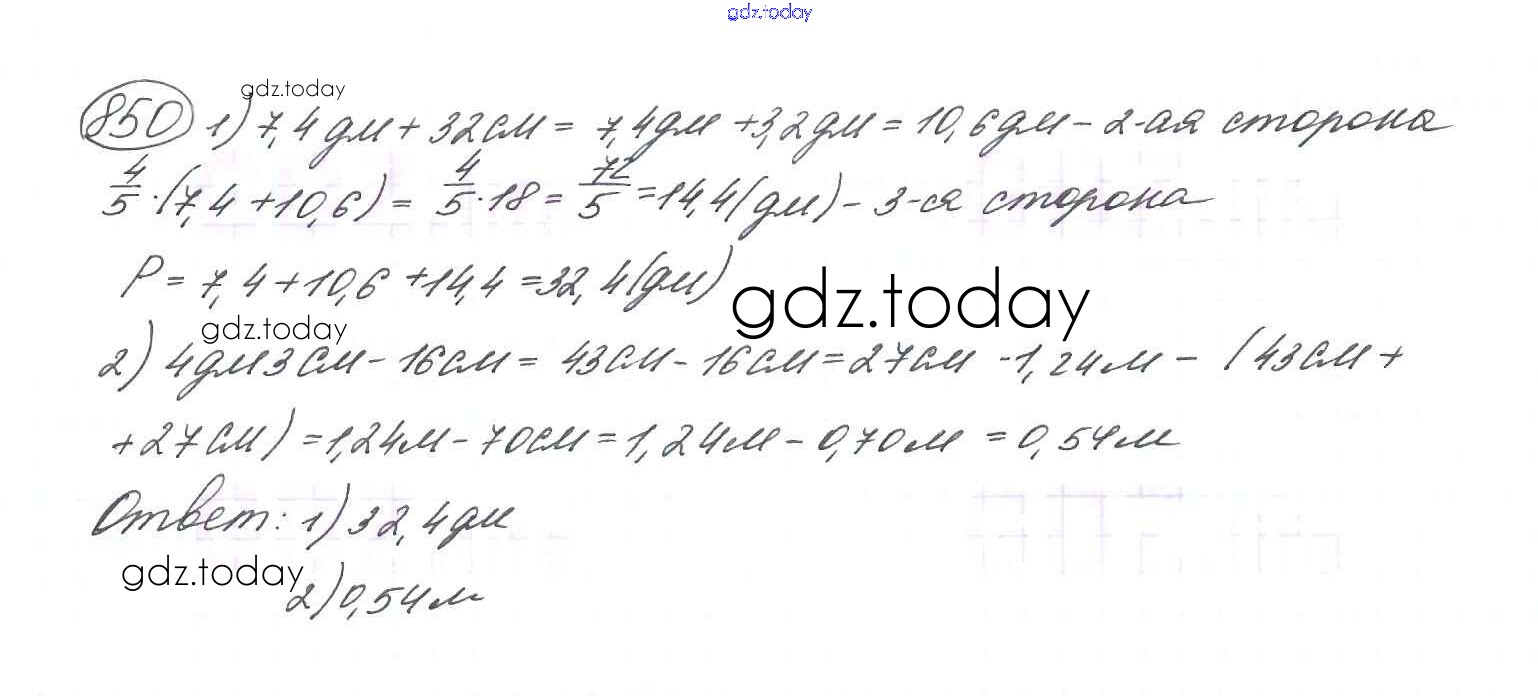 gdz.today
gdz.today
850 1) 7,4 дм + 32 см = 7,4 дм + 3,2 дм = 10,6 дм - 2-ая сторона
4/5 · (7,4 + 10,6) = 4/5 · 18 = 72/5 = 14,4 (дм) - 3-ся сторона
P = 7,4 + 10,6 + 14,4 = 32,4 (дм)
gdz.today
gdz.today
2) 4 дм 3 см - 16 см = 43 см - 16 см = 27 см - 1,24 м - (43 см +
+ 27 см) = 1,24 м - 70 см = 1,24 м - 0,70 м = 0,54 м
Ответ: 1) 32,4 дм
gdz.today
2) 0,54 м